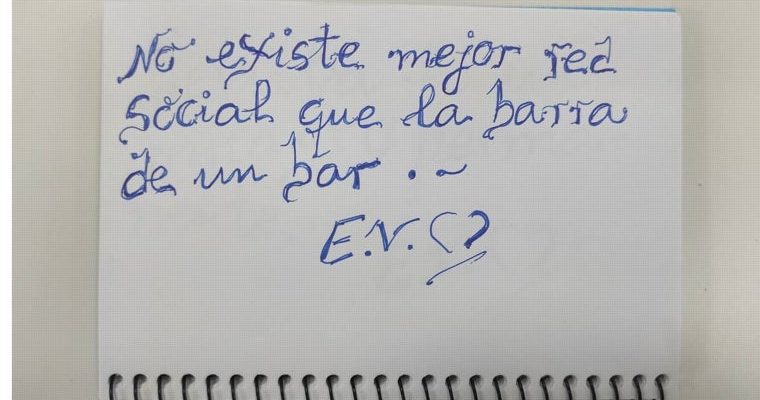 No existe mejor red
social que la barra
de un bar . ~
E.V. (?)